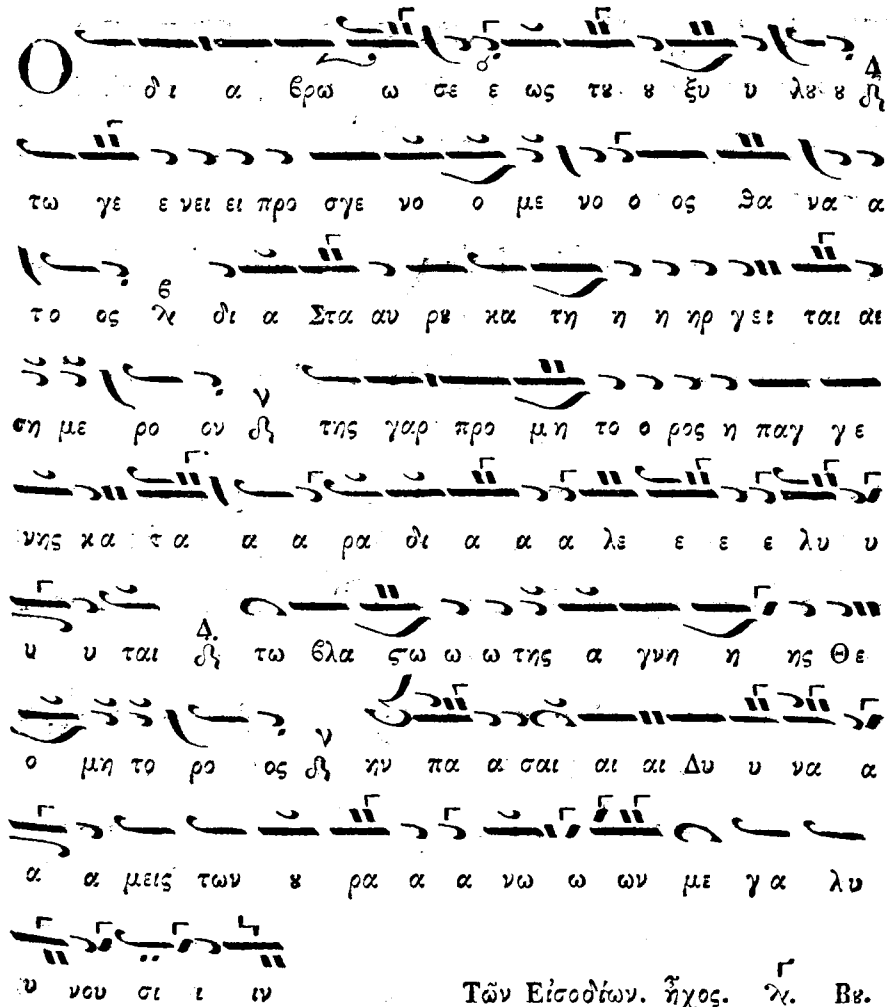 Ο δι α βρω ω σε ε ως τȣ ȣ ξυ υ λȣ ȣ Δ
τω γε ε νει ει προ σγε νο ο με νο ο ος θα να α
το ος β δι α Στα αυ ρȣ κα τη η η ηρ γει ται αι
ση με ρο ον ν της γαρ προ μη το ο ρος η παγ γε
νης κα τα α α ρα δι α α α λε ε ε ε λυ υ
υ υ ται Δ. τω βλα ϛω ω ω της α γνη η ης Θε
ο μη το ρο ος ν ην πα α σαι αι αι Δυ υ να α
α α μεις των ȣ ρα α α νω ω ων με γα λυ
υ νου σι ι ιν Τῶν Εἰσοδίων. ἦχος. Βȣ.